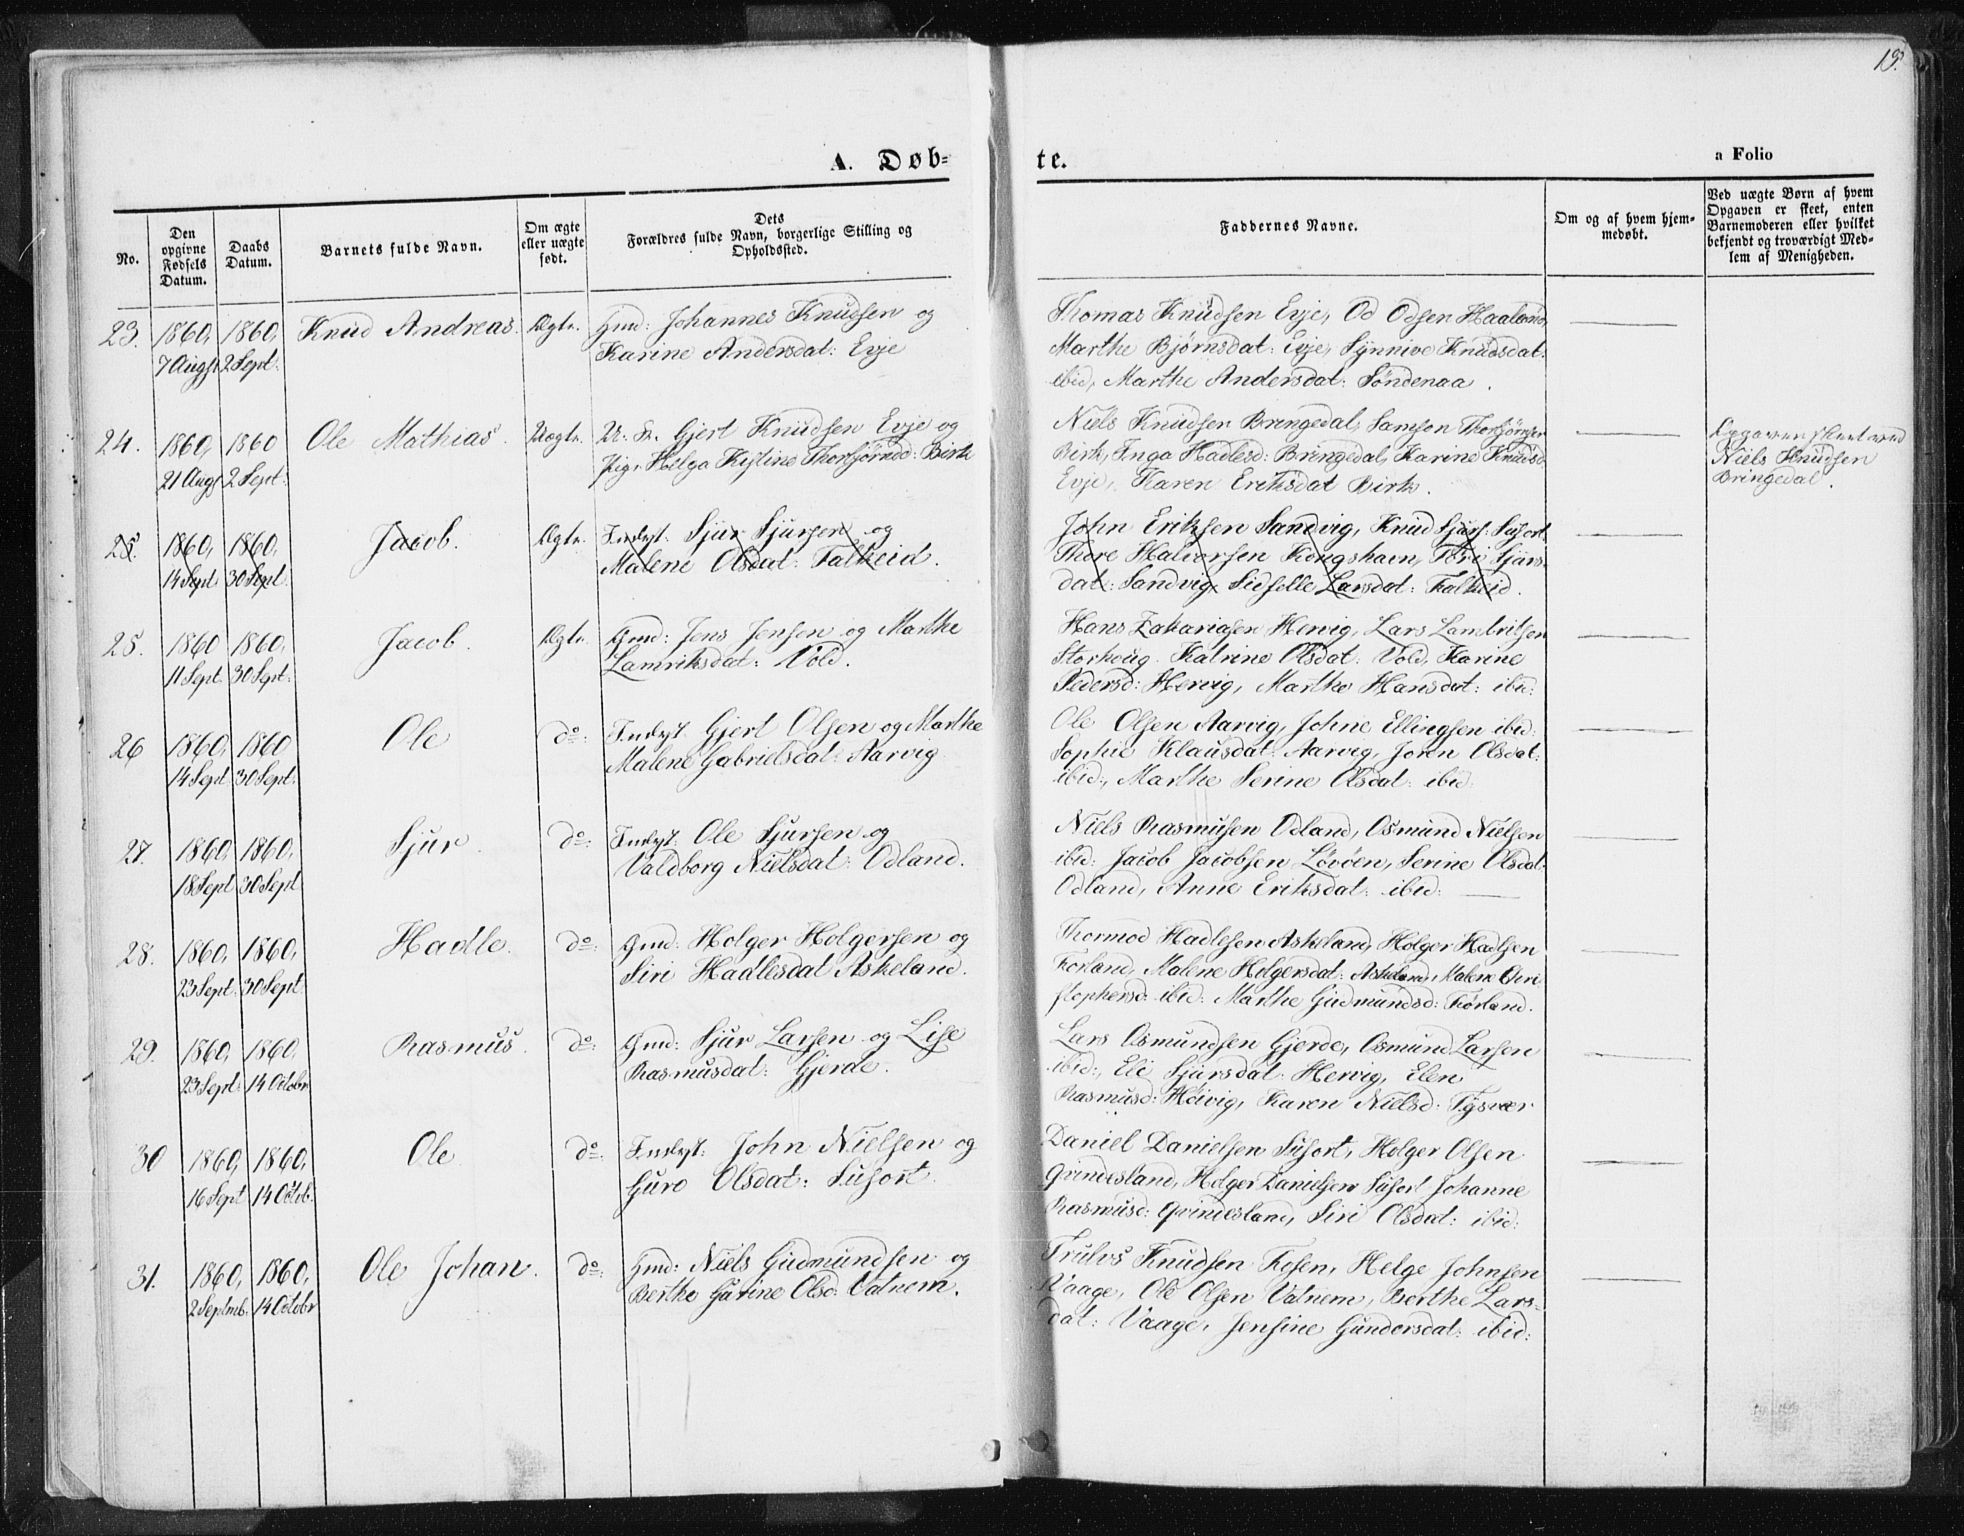 19.
A. Døb-
te.
a Folio
No.
Den opgivne Fødsels Datum.
Daabs Datum.
Barnets fulde Navn.
Om ægte eller uægte født.
Dets Forældres fulde Navn, borgerlige Stilling og Opholdssted.
Faddernes Navne.
Om og af hvem hjemmedøbt.
Ved uægte Børn af hvem Opgaven er skeet, enten Barnemoderen eller hvilket bekjendt og troværdigt Medlem af Menigheden.
23. 1860, 1860, Knud Andreas. Ægte. Gmd: Johannes Knudsen og
7 Augst 2 Sept: Karine Andersdat: Evje
Thomas Knudsen Evje, Od Odsen Haaland,
Marthe Bjørnsdat: Evje, Synnive Knudsdat:
ibid, Marthe Andersdat: Søndenaa.
24. 1860, 1860 Ole Mathias. Uægte. U. K. Gjert Knudsen Evje og
21 Augst 2 Sept: Pig. Helga Kistine Thorbjørnsd: Birk
Niels Knudsen Bringedal, Samson Thorbjørnsen
Birk, Inga Hadlesd: Bringedal, Karine Knudsd.
Evje, Karen Eriksdat Birk.
Opgaven skeet ved
Niels Knudsen
Bringedal.
25. 1860, 1860, Jacob. Ægte. Indst: Sjur Sjursen og
14 Sept 30 Sept. Malene Olsdat: Falkeid.
John Eriksen Sandvig, Knud Sjurs: Susort,
Thore Halvorsen Kongshavn, Tori Sjurs-
dat: Sandvig, Sidselle Larsdat: Falkeid.
25. 1860 1860, Jacob. Ægte. Gmd: Jens Jensen og Marthe
11 Sept. 30 Sept: Lamriksdat: Vold.
Hans Zakariasen Hervig, Lars Lambritsen
Storhoug. Katrine Olsdat: Vold, Karine
Pedersd: Hervig, Marthe Hansdat: ibid:
26 1860, 1860 Ole do: Indst: Gjert Olsen og Marthe
14 Sept 30 Sept: Malene Gabrielsdat: Aarvig
Ole Olsen Aarvig, Johne Ellingsen ibid:
Sophie Klausdat: Aarvig, Joren Olsdat:
ibid:, Marthe Serine Olsdat: ibid:
27. 1860 1860, Sjur. do: Indst: Ole Sjursen og
18 Sept 30 Sept Valdborg Nielsdat: Odland.
Niels Rasmusen Odland, Osmund Nielsen
ibid: Jacob Jacobsen Løvøen, Serine Olsdat:
Odland, Anne Eriksdat: ibid:
28. 1860, 1860, Hadle. do: Gmd: Holger Holgersen og
23 Sept. 30 Sept Siri Hadlesdat Askeland.
Thormod Hadlesen Askeland, Holger Hadlsen
Førland, Malene Holgersdat: Askeland, Malene Chri
stophersd: ibid: Marthe Gudmundsd: Førland.
29. 1860, 1860. Rasmus. do: Gmd: Sjur Larsen og Lise
23 Sept: 14 Octobr Rasmusdat: Gjerde.
Lars Osmundsen Gjerde, Osmund Larsen
ibid:, Eli Sjursdat. Hervig, Elen
Rasmusd: Høivig, Karen Nielsd: Tysvær
30 1860, 1860, Ole do: Indst: John Nielsen og
16 Sept 14 Octob. Guro Olsdat: Susort.
Daniel Danielsen Susort, Holger Olsen
Grindesland, Holger Danielsen Susort Johanne
Rasmusd: Grindesland, Siri Olsdat: ibid:
31. 1860, 1860, Ole Johan. do: Gmd: Niels Gudmundsen og
2 Septmb. 14 Octobr Berthe Gurine Olsd: Vatnem.
Trulvs Knudsen Fosen, Helge Johnsen
Vaage, Ole Olsen Vatnem, Berthe Lars-
dat: Vaage, Jensine Gundersdat: ibid: